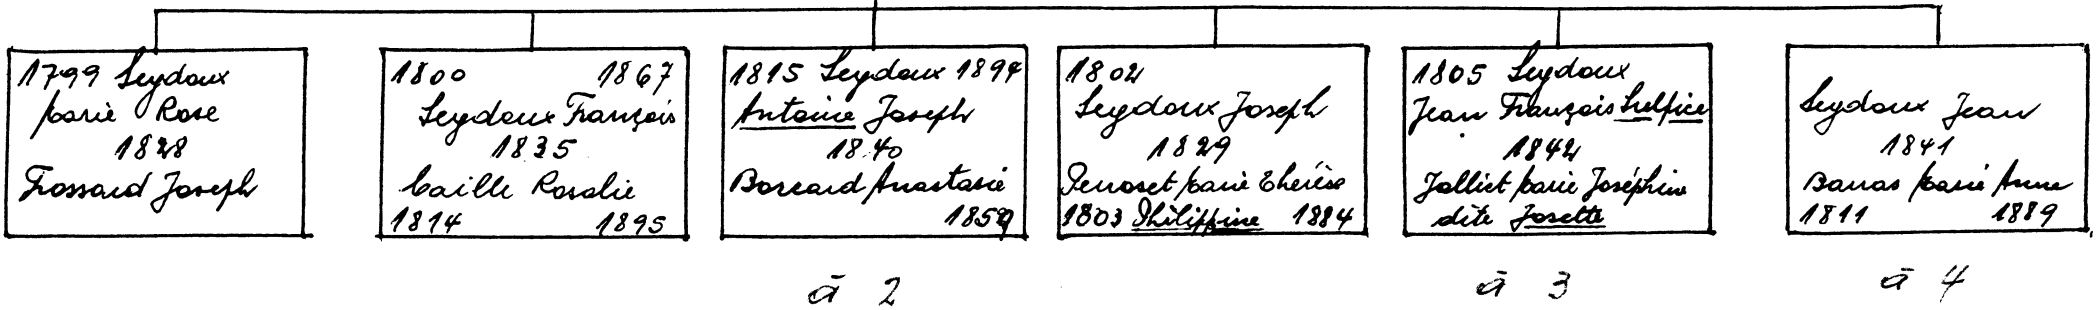 1799 Seydoux
Marie Rose
1828
Frossard Joseph
1800 1867
Seydoux François
1835
Caille Rosalie
1814 1895
1815 Seydoux 1894
Antoine Joseph
1840
Borcard Anastasie
1859
1802
Seydoux Joseph
1829
Perroset Marie Thérèse
1803 Philippine 1884
1805 Seydoux
Jean François Sulpice
1842
Jolliet Marie Joséphine
dite Josette
Seydoux Jean
1841
Barras Marie Anne
1811 1889
à 2
à 3
à 4